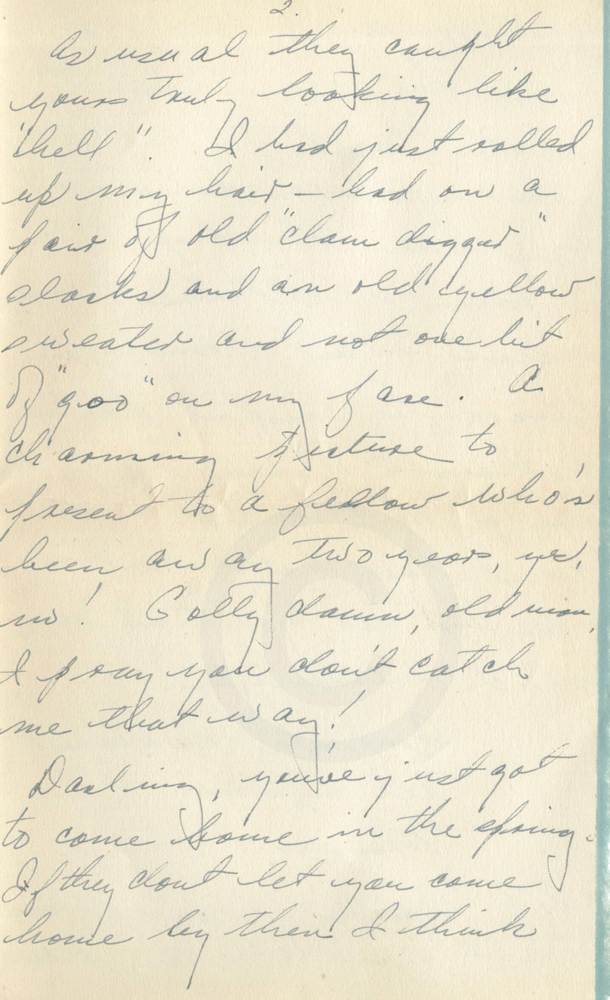 2.
As usual they caught
yours truly looking like
"hell". I had just rolled
up my hair – had on a
pair of old "clam digger"
slacks and an old yellow
sweater and not one bit
of "goo" on my face. A
charming picture to
present to a fellow who's
been away two years, yes,
no! Golly damn, old man,
I pray you don't catch
me that way!
Darling, you've just got
to come home in the spring.
If they dont let you come
home by then I think